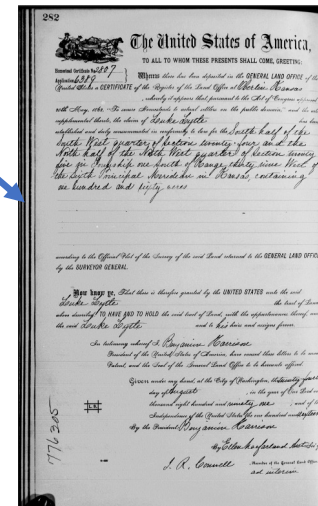 282
The United States of America,
TO ALL TO WHOM THESE PRESENTS SHALL COME, GREETING:
Homestead Certificate No. 2807
Application 6389
Whereas there has been deposited in the GENERAL LAND OFFICE of the
United States a CERTIFICATE of the Register of the Land Office at Oberlin Kansas
, whereby it appears that, pursuant to the Act of Congress approved
20th May, 1862, "To secure Homesteads to actual settlers on the public domain," and the acts
supplemental thereto, the claim of Louke Lytle has been
established and duly consummated in conformity to law for the South half of the
South West quarter of Section twenty-four and the
North half of the North West quarter of Section twenty
five in Township one South of Range thirty nine West of
the Sixth Principal Meridian in Kansas, containing
one hundred and sixty acres
according to the Official Plat of the Survey of the said Land returned to the GENERAL LAND OFFICE
by the SURVEYOR GENERAL.
Now know ye, That there is therefore granted by the UNITED STATES unto the said
Luke Lytle the tract of Land
above described; TO HAVE AND TO HOLD the said tract of Land, with the appurtenances thereof, unto
the said Luke Lytle and to his heirs and assigns forever.
In testimony whereof I, Benjamin Harrison
President of the United States of America, have caused these letters to be made
Patent, and the Seal of the General Land Office to be hereunto affixed.
Given under my hand, at the City of Washington, the
day of August , in the year of Our Lord one
thousand eight hundred and ninety one , and of the
Independence of the United States the one hundred and sixteenth
By the President: Benjamin Harrison
By Ellen Macfarland
J. R. Conwell , Recorder of the General Land Office
ad interim
776305